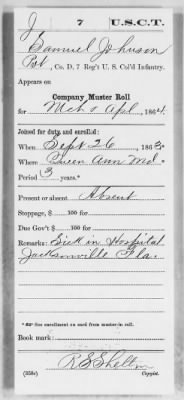 J 7 U.S.C.T.
Samuel Johnson
Pvt., Co. D, 7 Reg't U. S. Col'd Infantry.
Appears on
Company Muster Roll
for Mch & Apl, 1864.
Joined for duty and enrolled:
When Sept 26, 1863.
Where Queen Ann Md.
Period 3 years.*
Present or absent Absent
Stoppage, $ 100 for
Due Gov't $ 100 for
Remarks: Sick in Hospital
Jacksonville Fla.
* See enrollment on card from muster-in roll.
Book mark:
R E Shelton
(358c) Copyist.